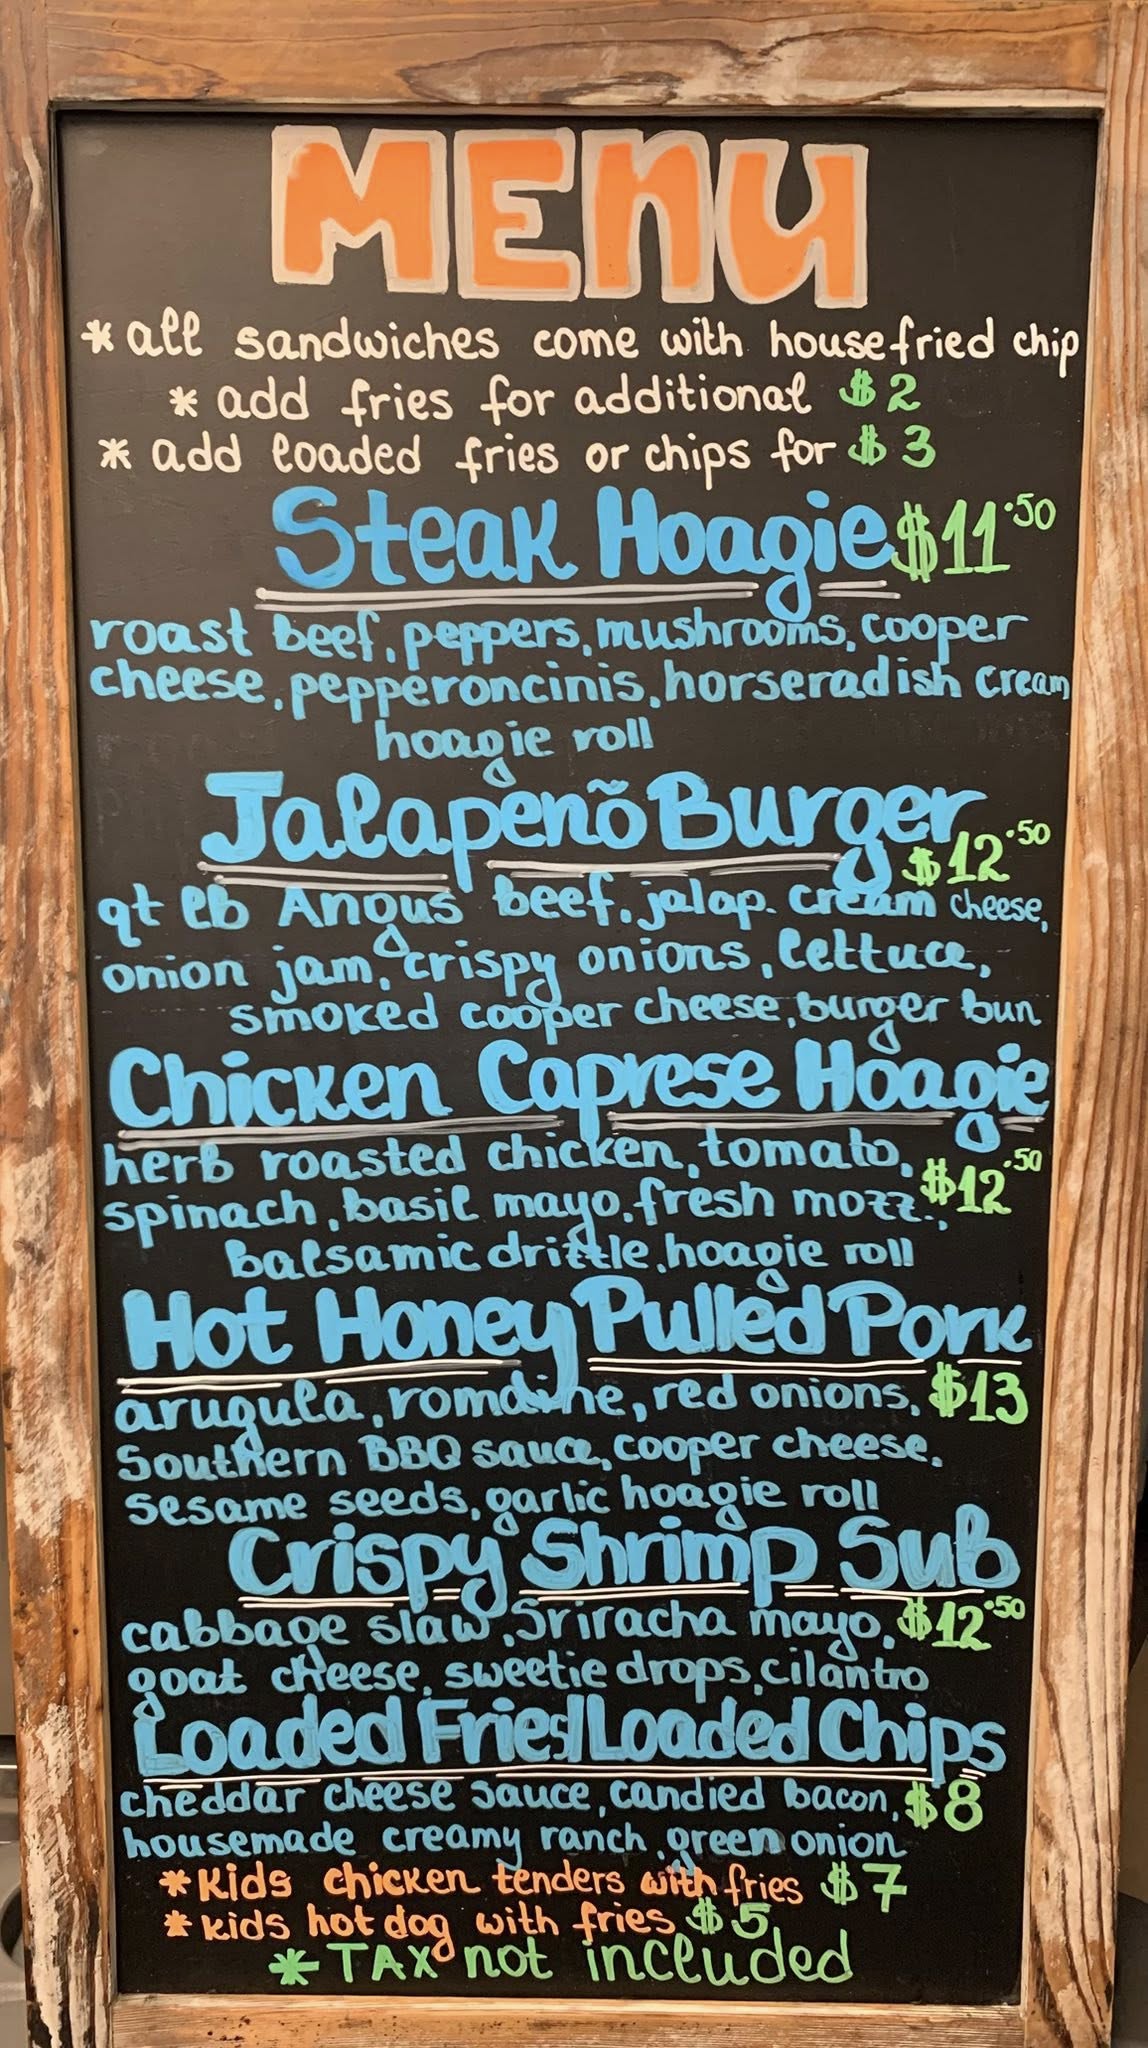 MENU
* all sandwiches come with house fried chip
* add fries for additional $2
* add loaded fries or chips for $3
Steak Hoagie $11.50
roast beef, peppers, mushrooms, cooper
cheese, pepperoncinis, horseradish cream
hoagie roll
Jalapenõ Burger
$12.50
qt lb Angus beef, jalap. cream cheese,
onion jam, crispy onions, lettuce,
smoked cooper cheese, burger bun
Chicken Caprese Hoagie
herb roasted chicken, tomato,
spinach, basil mayo, fresh mozz., $12.50
balsamic drizzle, hoagie roll
Hot Honey Pulled Pork
arugula, romaine, red onions, $13
Southern BBQ sauce, cooper cheese,
sesame seeds, garlic hoagie roll
Crispy Shrimp Sub
cabbage slaw, Sriracha mayo, $12.50
goat cheese, sweetie drops, cilantro
Loaded Fries/Loaded Chips
cheddar cheese sauce, candied bacon, $8
housemade creamy ranch, green onion
* Kids chicken tenders with fries $7
* kids hot dog with fries $5
* TAX not included